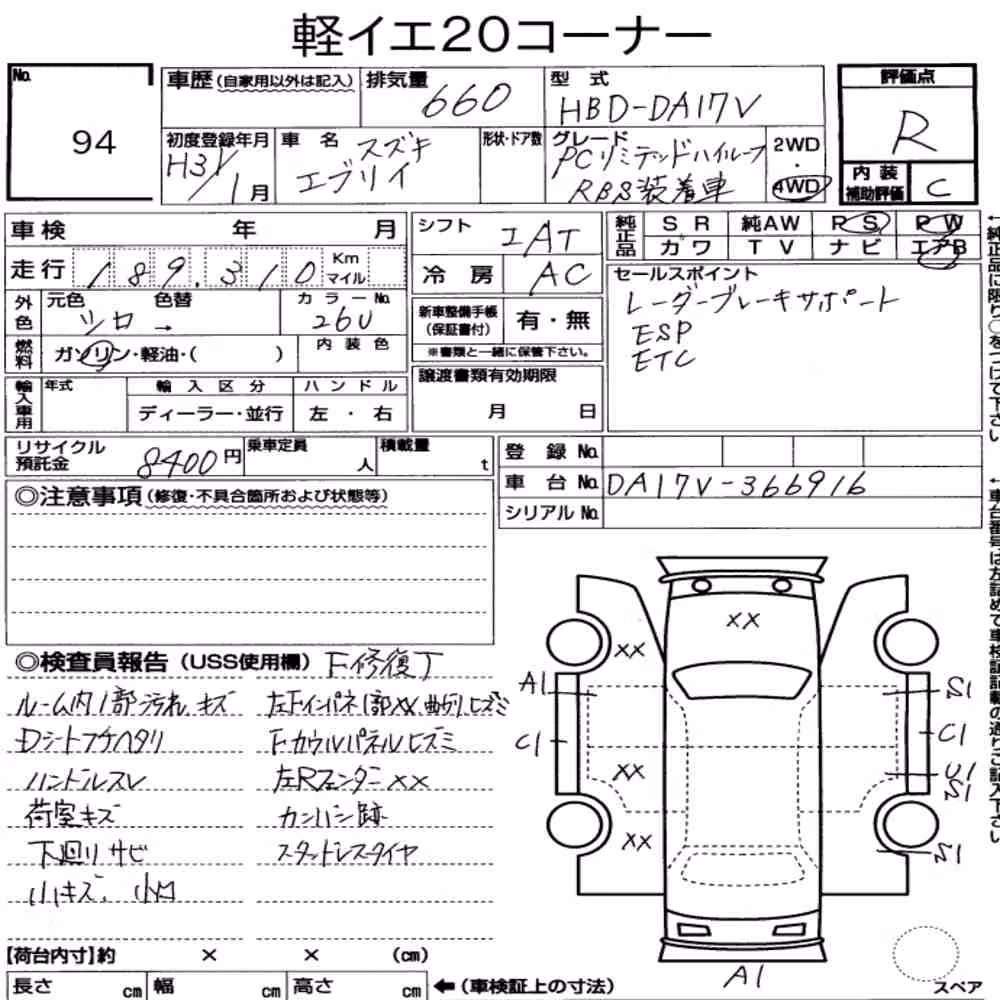 軽イエ20コーナー
No.
94
車歴 (自家用以外は記入)
排気量
660
型式
HBD-DA17V
評価点
R
初度登録年月
H31/1月
車名
スズキ
エブリイ
形状・ドア数
グレード
PCリミテッドハイルーフ
RBS装着車
2WD
・
4WD
内装
補助評価
C
車検 年 月
走行 189,310 Km マイル
外色
元色 シロ →
色替
カラーNo.
26U
燃料
ガソリン・軽油・( )
内装色
輸入車用
年式
輸入区分
ディーラー・並行
ハンドル
左・右
シフト
IAT
冷房
AC
新車整備手帳
(保証書付)
有・無
※書類と一緒に保管下さい。
譲渡書類有効期限
月 日
純正品
SR 純AW PS PW
カワ TV ナビ エアB
セールスポイント
レーダーブレーキサポート
ESP
ETC
←純正品に限り○をつけて下さい
リサイクル
預託金
8400円
乗車定員
人
積載量
t
登録No.
車台No.
DA17V-366916
シリアルNo.
←車台番号は左詰めで車検証記載の通りご記入下さい
◎注意事項(修復・不具合箇所および状態等)
◎検査員報告 (USS使用欄) F修復了
ルーム内1部汚れ、キズ
Dシートフチヘタリ
ハンドルスレ
荷室キズ
下廻りサビ
小キズ、小凹
左Fインパネ1部XX、曲り、ヒズミ
Fカウルパネルヒズミ
左RフェンダーXX
カンバン跡
スタッドレスタイヤ
XX
XX
A1
S1
C1
C1
XX
U1
S1
XX
S1
A1
スペア
【荷台内寸】約 × × (cm)
長さ cm 幅 cm 高さ cm ←(車検証上の寸法)